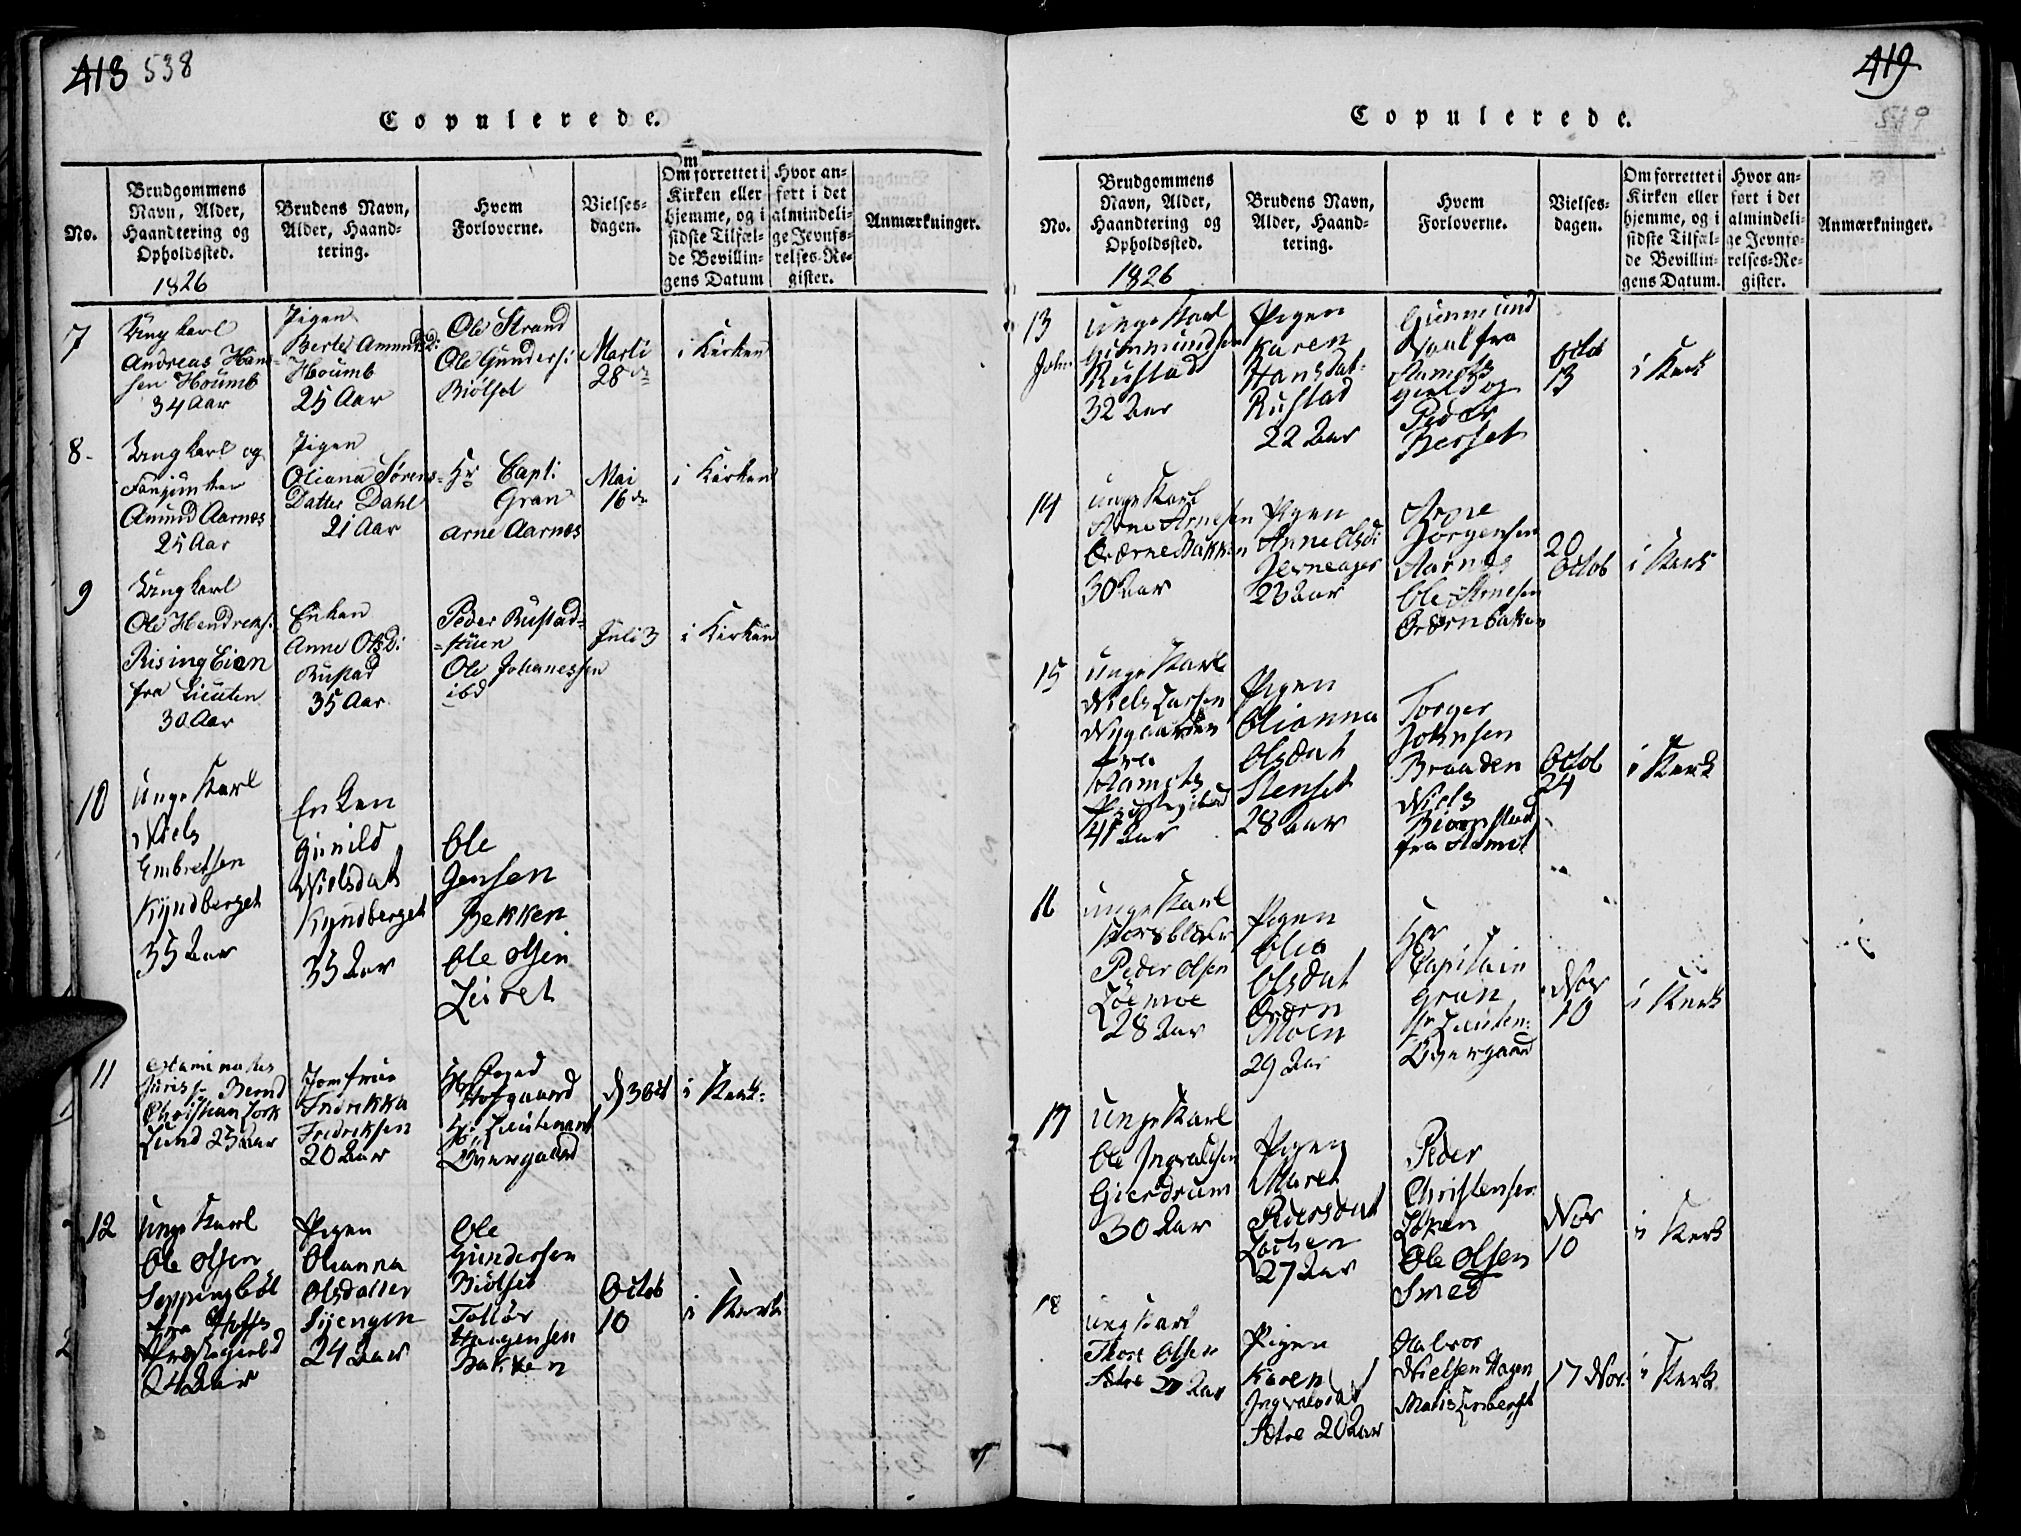 418 538
Copulerede.
No.
Brudgommens
Navn, Alder,
Haandtering og
Opholdssted.
1826
Brudens Navn,
Alder, Haand-
tering.
Hvem
Forloverne.
Vielses-
dagen.
Om
Om forrettet i
Kirken eller
hjemme, og i
sidste Tilfæl-
de Bevillin-
gens Datum
Hvor an-
ført i det
almindeli-
ge Jevnfø-
relses-Re-
gister.
Anmærkninger.
7
Ungkarl
Andreas Han-
sen Houmb
34 Aar
Pigen
Berte Amundsd:
Houmb
25 Aar
Ole Strand
Ole Gunders:
Biölset
Marti
28de
i Kirken
8.
Ungkarl og
Fanjunker
Amund Aarnæs
25 Aar
Pigen
Oliana Sørens-
Datter Dahl
21 Aar
Hr Capt:
Gran
Arne Aarnæs
Mai
16de
i Kirken
9
Ungkarl
Ole Hendreks:
Rising Eien
fra Lieuten
30 Aar
Enken
Anne Olsd:
Rustad
35 Aar
Peder Rustad-
-stuen
Ole Johanessen
ibd
Juli 3
i Kirken
10
Unge Karl
Niels
Embretsen
Kyndberget
35 Aar
Enken
Gunild
Nielsdat
Kyndberget
35 Aar
Ole
Jensen
Bekken
Ole Olsen
Leiret
11
Juris Bernd
Christian
Lund 25 Aar
Jomfrue
Fredrikka
Fredriksen
20 Aar
Hr Foged
Hofgaard
Hr Lieutenant
Øvergaard
i Kerk:
12
Unge Karl
Ole Olsen
fra Hoffs
Præstegield
24 Aar
Pigen
Olianna
Olsdatter
24 Aar
Ole
Gundersen
Biölset
Bakken
Octob
10
i Kerk
419
Copulerede.
539
No.
Brudgommens
Navn, Alder,
Haandtering og
Opholdssted.
1826
Brudens Navn,
Alder, Haand-
tering.
Hvem
Forloverne.
Vielses-
dagen.
Om forrettet i
Kirken eller
hjemme, og i
sidste Tilfæl-
de Bevillin-
gens Datum.
Hvor an-
ført i det
almindeli-
ge Jevnfø-
relses-Re-
gister.
Anmærkninger.
13
Unge Karl
John Gummundsen
Rustad
32 Aar
Pigen
Karen
Hansdat:
Rustad
22 Aar
Gummund
fra
og
Peder
Berset
Octob
13
i Kerk
14
Unge Karl
Arne Arnesen
30 Aar
Pigen
Anne Olsd:
23 Aar
Arne
Jorgensen
Aarnæs
Ole Arnesen
20
Octob
i Kerk
15
Unge Karl
Niels Larsen
Nygaarden
fra
41 Aar
Pigen
Olianna
Olsdat
Stenset
28 Aar
Torger
Johnsen
Braaden
Niels
Biørnstad
fra Aamot
Octob
24
i Kerk
16
Unge Karl
Peder Olsen
Løemoe
28 Aar
Pigen
Olea
Olsdat
Moen
29 Aar
Hr
Capitain
Gran
Hr Lieuten:
Øvergaard
Nov
10
i Kerk
17
Unge Karl
Ole Ingvaldsen
Gierdrum
30 Aar
Pigen
Maret
Pedersdat
27 Aar
Peder
Christensen
Løken
Ole Olsen
Smed
Nov
10
i Kerk
18
Ung Karl
Thore Olsen
Sætre 27 Aar
Pigen
Karen
Ingvalsdat
Sætre 20 Aar
Halvor
Nielsen Hagen
17 Nov:
i Kerk